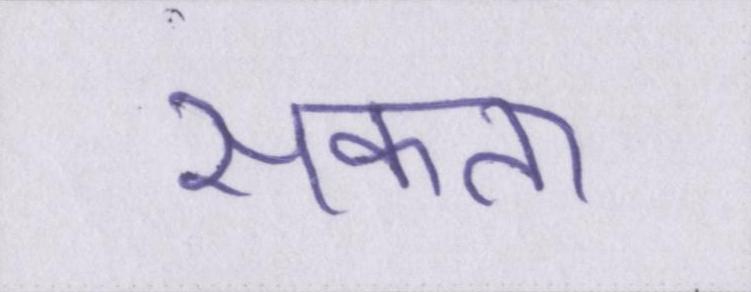 सकता